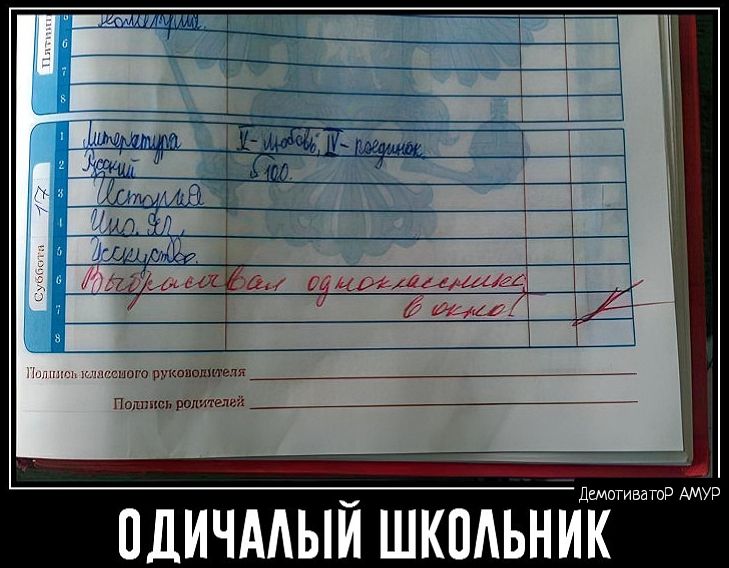 Пятница
Геометрия.
6
7
8
Суббота 17
1 Литература V - Любовь, IV - поединок.
2 Русский § 100.
3 История
4 Ино. яз.
5 Исскуство.
6 Выбрасывал одноклассника
7 в окно!
8
Подпись классного руководителя
Подпись родителей
ДемотиватоР АМУР
ОДИЧАЛЫЙ ШКОЛЬНИК